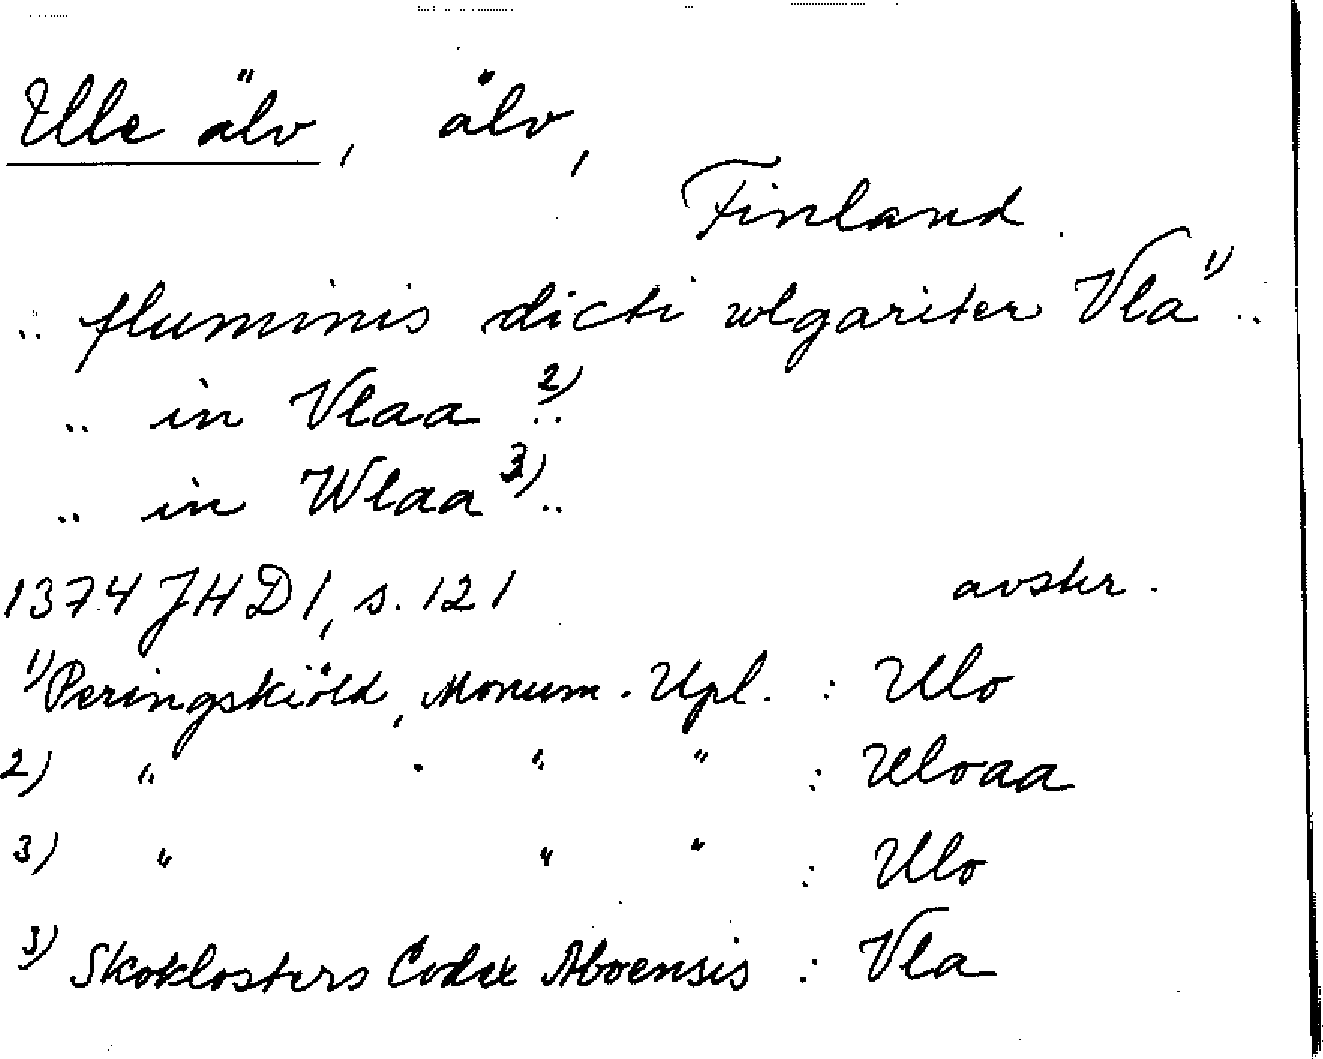 Ule älv, älv,
Finland.
.. fluminis dicti wlgariter Vla 1) ..
.. in Vlaa 2) ..
.. in Wlaa 3) ..
1374 JHD 1, s. 121 avskr.
1) Peringskiöld, Monum. Upl. : Ulo
2) " " " : Uloaa
3) " " " : Ulo
3) Skoklosters Codex Aboensis : Vla